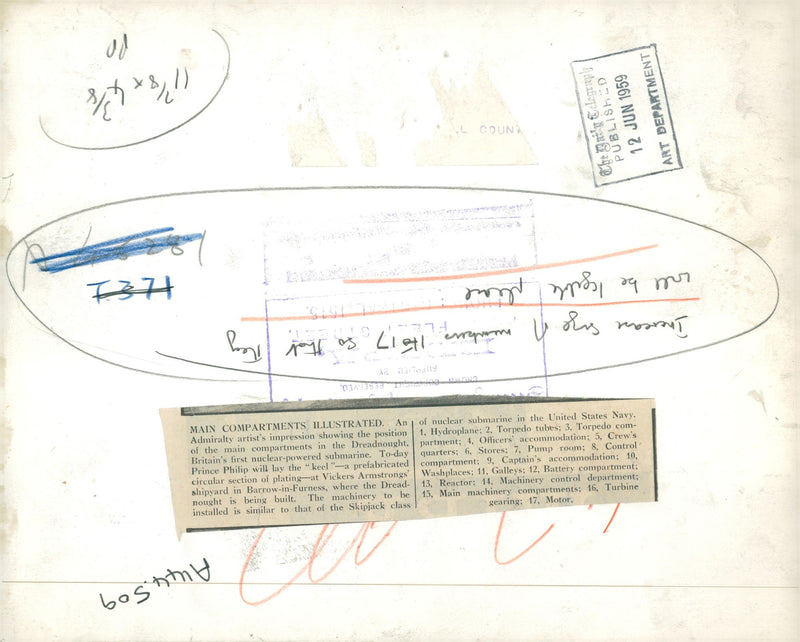 11 7/8 x 4 3/8
L COUNT
The Daily Telegraph
PUBLISHED
12 JUN 1959
ART DEPARTMENT
T371
Increase size of numbers 1 to 17 so that they
will be legible please
FLEET STREET,
SUPPLIED BY
CROWN COPYRIGHT RESERVED.
MAIN COMPARTMENTS ILLUSTRATED. An
Admiralty artist's impression showing the position
of the main compartments in the Dreadnought,
Britain's first nuclear-powered submarine. To-day
Prince Philip will lay the "keel"—a prefabricated
circular section of plating—at Vickers Armstrongs'
shipyard in Barrow-in-Furness, where the Dread-
nought is being built. The machinery to be
installed is similar to that of the Skipjack class
of nuclear submarine in the United States Navy.
1, Hydroplane; 2, Torpedo tubes; 3, Torpedo com-
partment; 4, Officers' accommodation; 5, Crew's
quarters; 6, Stores; 7, Pump room; 8, Control
compartment; 9, Captain's accommodation; 10,
Washplaces; 11, Galleys; 12, Battery compartment;
13, Reactor; 14, Machinery control department;
15, Main machinery compartments; 16, Turbine
gearing; 17, Motor.
A44509